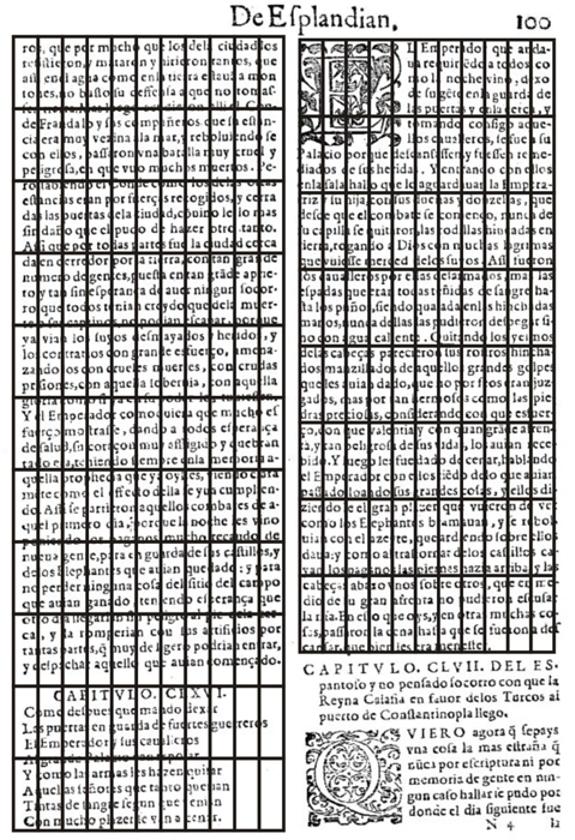 De Esplandian. 100
ros, que por mucho que los dela ciudad les
resistieron, y mataron y hirieron tantos, que
assi en el agua como en la tierra estaua a mon
tones, no basto su deffensa a que no tomas-
de Frandalo y sus compañeros que su estan-
cia era muy vezina a la mar, y reboluiendose
con ellos, passaron vna batalla muy cruel y
peligrosa, en que vuo muchos muertos. Pe-
estancias eran por fuerça recogidos, y cerra
das las puertas dela ciudad, conuino le lo mas
sin daño que el pudo de hazer otro tanto.
Assi que por todas partes fue la ciudad cerca
da en derredor por la tierra, con tan grande
numero de gentes, puesta en tan grãde aprie-
to y tan sin esperança de auer ningun socor-
ro que todos tenian creydo que dela muer-
ya vian los suyos desmayados y heridos, y
los contrarios con grande esfuerço, amena-
zando los con crueles muertes, con crudas
prisiones, con aquella soberuia, con aquella
Y el Emperador como quiera que mucho es
fuerço mostrasse, dando a todos esperança
de salud, su coraçon muy affligido y quebran
tado era, teniendo siempre en la memoria a-
quella prophecia que ya oystes, viendo cla
mẽte como el effecto della se yua cumplien-
do. Assi se partieron aquellos combates de a-
quel primero dia, porque la noche les vino
nueua gente, para en guarda de sus castillos, y
delos Elephantes que auian quedado: y para
no perder ninguna cosa del sitio del campo
que auian ganado, teniendo esperança que
otro dia llegarian sin peligro al pie dela cer-
ca, y la romperian con sus artificios por
tantas partes, q̃ muy de ligero podrian entrar,
y despachar aquello que auian començado.
CAPITVLO. CLXVI.
Como despues que mando dexar
Las puertas en guarda de fuertes guerreros
El Emperador y sus caualleros
Y como las armas les hazen quitar
Aquellas señoras que tanto querian
Tintas de sangre segun que venian
Con mucho plazer se van a cenar.
EL Emperador que anda-
ua requiriẽdo a todos co
mo la noche vino, dexo
de su gẽte en la guarda de
las puertas y en la cerca, y
tomando consigo aque-
llos caualleros, se fue a su
Palacio porque descansassen y fuessen reme-
diados de sus heridas. Y entrando con ellos
en la sala hallo que le aguardaua la Empera-
triz y su hija, con sus dueñas y donzellas, que
desde que el combate se començo, nunca de
su capilla se quitaron, las rodillas hincadas en
tierra, rogando a Dios con muchas lagrimas
que vuiesse merced delos suyos. Assi fueron
los caualleros por ellas desarmados, mas las
espadas que eran todas teñidas de sangre ha-
sta los puños, siendo quajada en las hinchadas
manos, nunca dellas las pudieron despegar si-
no con agua caliente. Quitando los yelmos
delas cabeças parecieron sus rostros hincha-
dos manzillados de aquellos grandes golpes
que les auian dado, que no por feos eran juz-
gados, mas por tan hermosos como las pie
dras preciosas, considerando con que esfuer
ço, con que valentia y con quan grãde afren-
ta, y tan peligrosa de sus vidas, los auian rece-
bido. Y luego les fue dado de cenar, hablando
el Emperador con ellos riẽdo delo que auian
passado loando sus grandes cosas, y ellos di-
ziendole el gran plazer que vuieron de ver
como los Elephantes bramauan, y se rebol
uian con el azeyte, quebrando sobre ellos
data: y como al trastornar delos castillos ca-
yan los paganos las piernas hazia arriba y las
cabeças abaxo vnos sobre otros, que en me-
dio de su gran afrenta no pudieron escusar
la risa. En esto que oys, y en otras muchas co-
sas, passaron la cena hasta que se fueron a des
cansar, que bien les era menester.
CAPITVLO. CLVII. DEL ES-
pantoso y no pensado socorro con que la
Reyna Calafia en fauor delos Turcos al
puerto de Constantinopla llego.
QVIERO agora q̃ sepays
vna cosa la mas estraña q̃
nũca por escriptura ni por
memoria de gente en nin-
gun caso hallar se pudo por
donde el dia siguiente fue
N 4 la